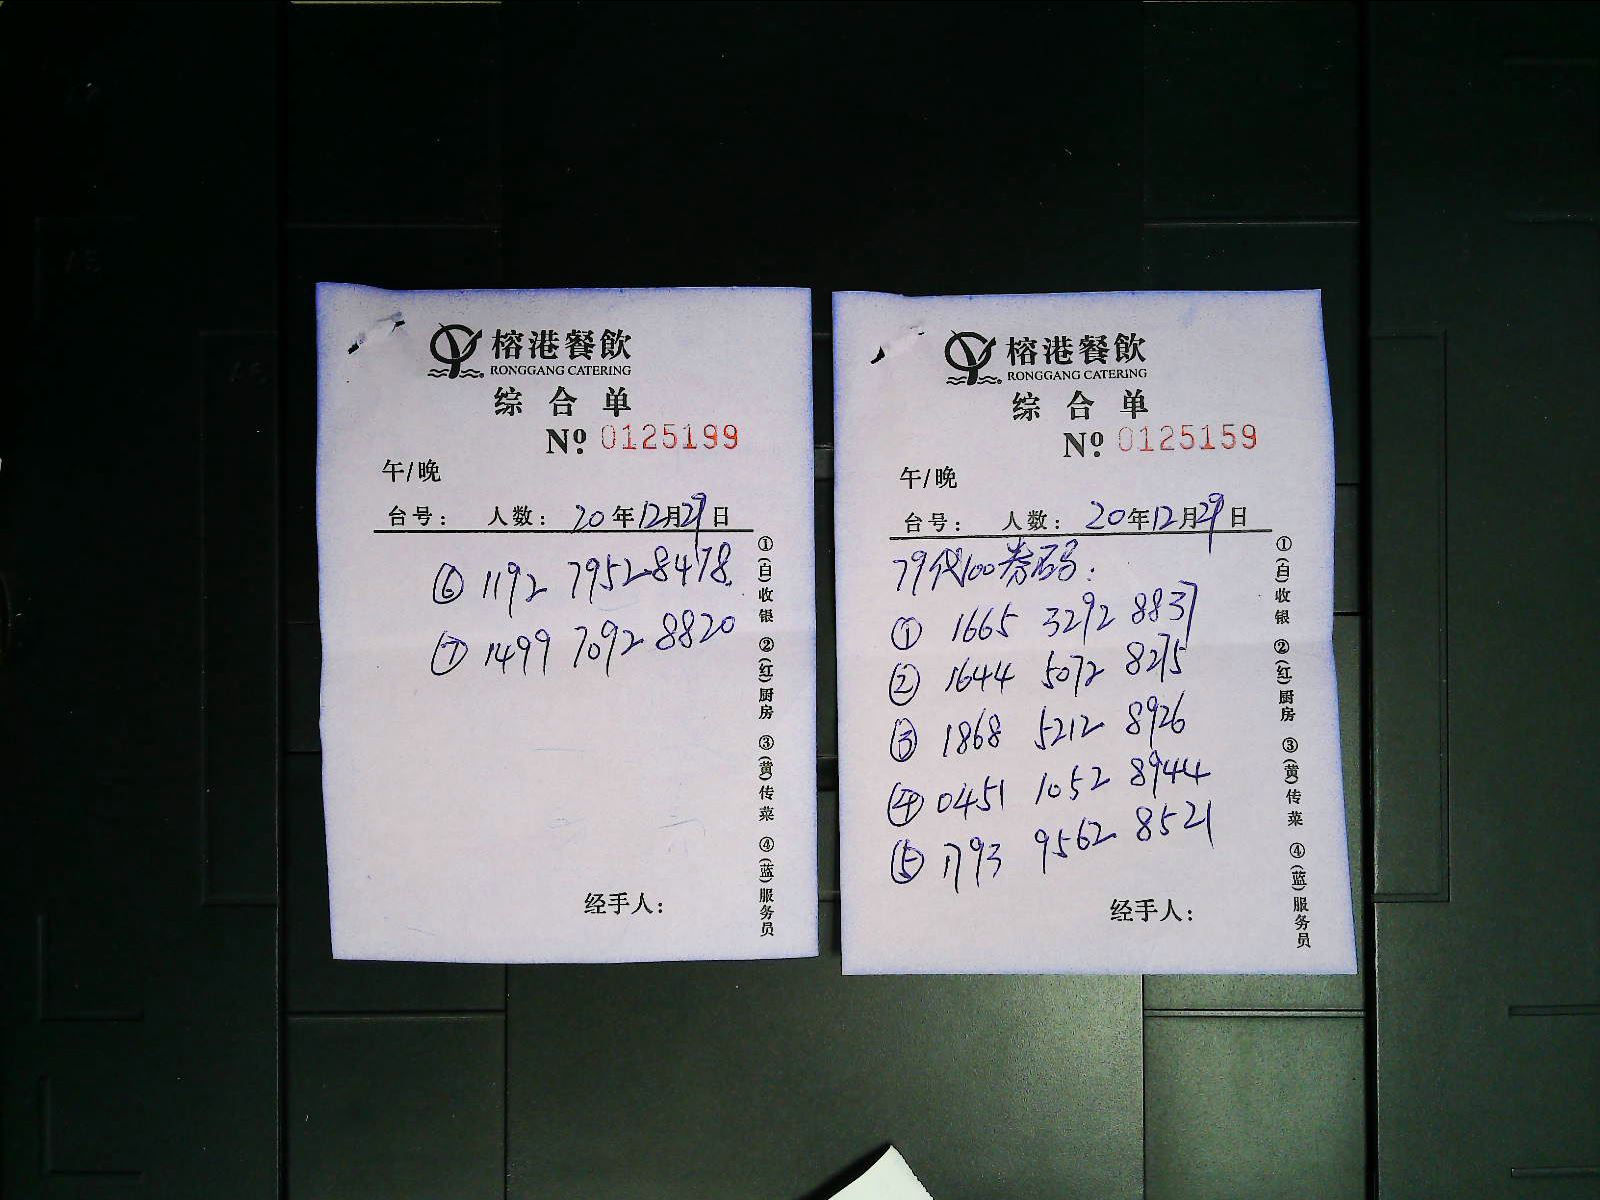 榕港餐飲
RONGGANG CATERING
综合单
Nº 0125199
午/晚
台号： 人数： 20年12月29日
⑥ 1192 7952 8478
⑦ 1499 7092 8820
经手人：
①(白)收银 ②(红)厨房 ③(黄)传菜 ④(蓝)服务员
榕港餐飲
RONGGANG CATERING
综合单
Nº 0125159
午/晚
台号： 人数： 20年12月29日
79代100券码：
① 1665 3292 8837
② 1644 5072 8275
③ 1868 5212 8926
④ 0451 1052 8944
⑤ 1793 9562 8521
经手人：
①(白)收银 ②(红)厨房 ③(黄)传菜 ④(蓝)服务员